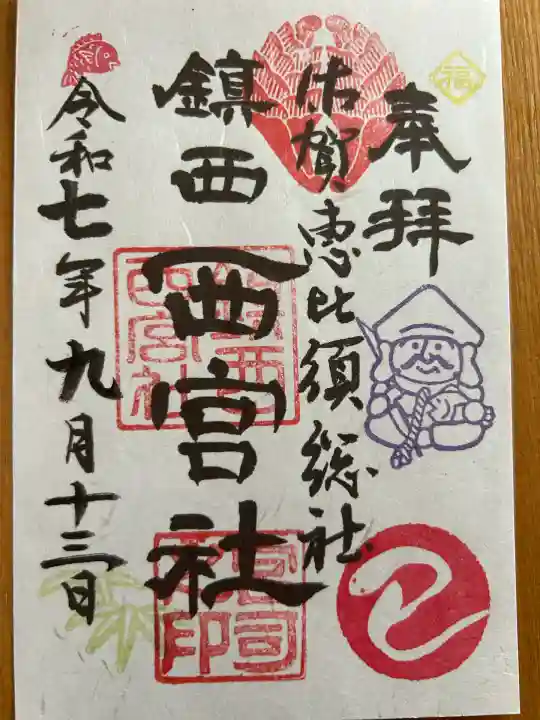 福
奉拝
佐賀恵比須総社
鎮西西宮社
鎮西西宮社
宮司之印
令和七年九月十三日